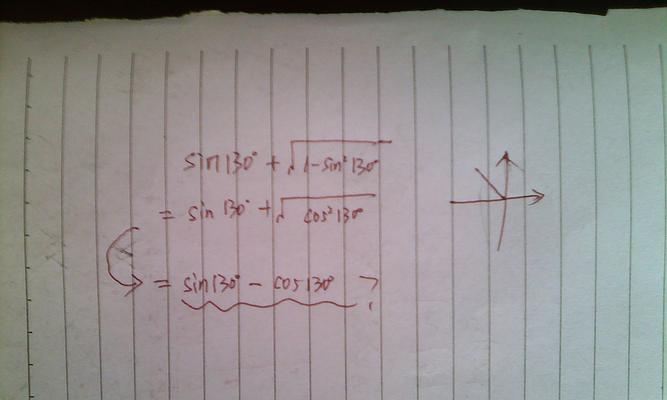 sin130° + √(1-sin²130°)
= sin130° + √(cos²130°)
= sin130° - cos130° ?